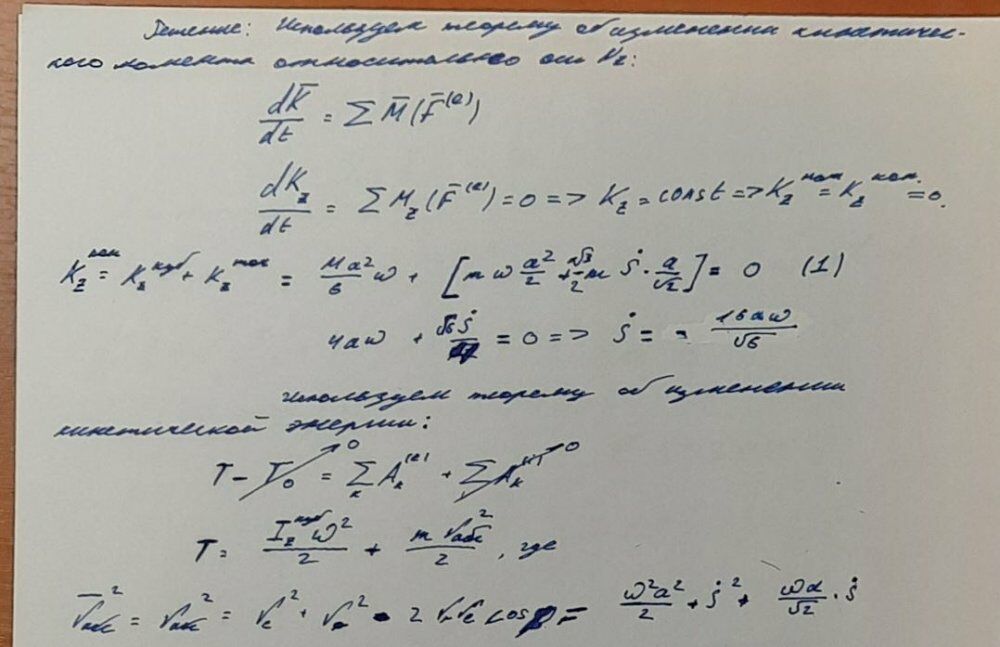 Решение: Используем теорему об изменении кинетичес-
кого момента относительно оси Vz:
dK̄/dt = ∑ M̄(F̄^(e))
dK_z/dt = ∑ M_z(F̄^(e)) = 0 => K_z = const => K_z^нач = K_z^кон. = 0.
K_z^кон = K_z^куб + K_z^точ = Ma²/6 ω + [mω a²/2 + √3/2 m ṡ · a/√2] = 0 (1)
4aω + √6ṡ = 0 => ṡ = - 16aω/√6
Используем теорему об изменении
кинетической энергии:
T - T₀ ↗0 = ∑_k A_k^(e) + ∑ A_k^(i) ↗0
T = I_z^куб ω²/2 + m V_абс²/2, где
V̄_абс² = V_абс² = V_e² + V_r² - 2 V_r V_e cos = ω²a²/2 + ṡ² + ωa/√2 · ṡ